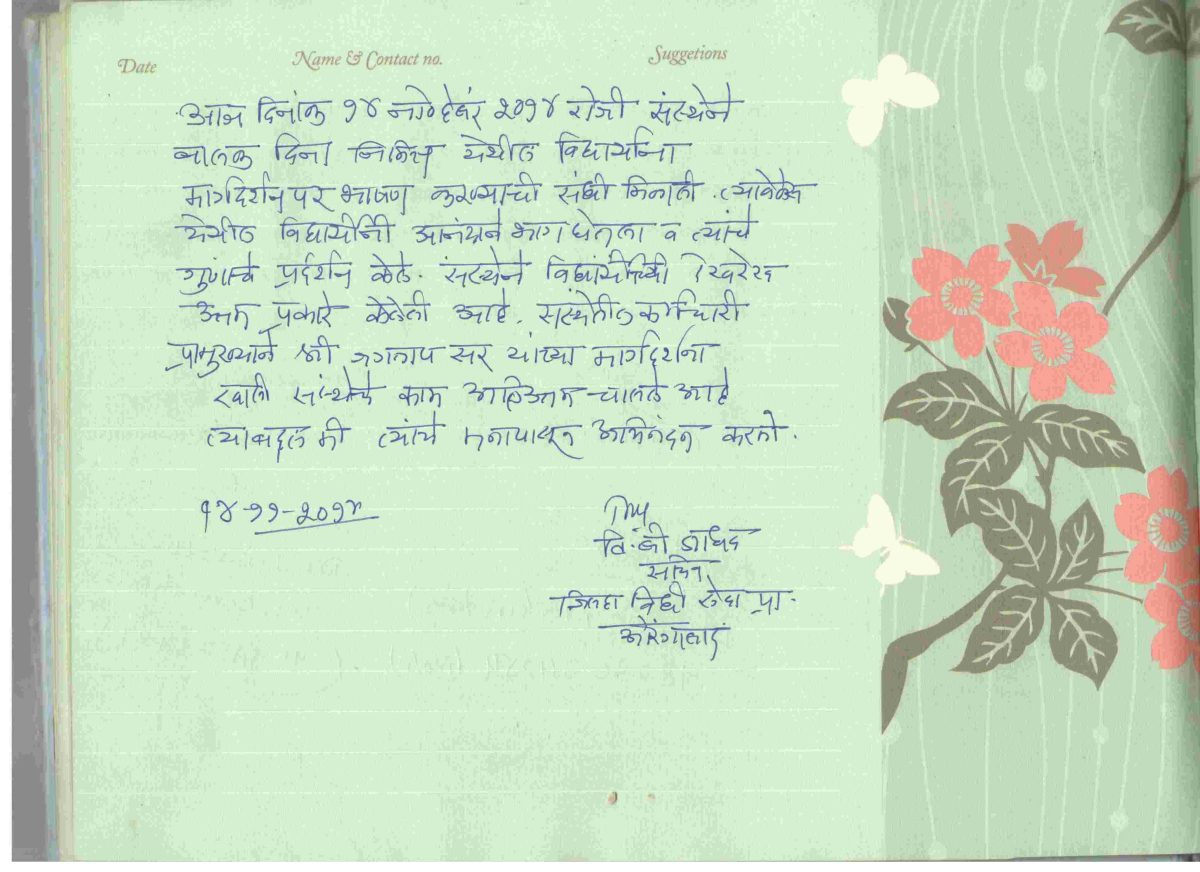 Date Name & Contact no. Suggetions
आज दिनांक १४ नोव्हेबर २०१४ रोजी संस्थेने
बालक दिना निमित्त येथील विद्यार्थांना
मार्गदर्शनपर भाषण करण्याची संधी मिळाली. त्यावेळेस
येथील विद्यार्थीनी आनंदाने भाग घेतला व त्यांचे
गुणांचे प्रर्दशन केले. संस्थेने विद्यार्थांची देखरेख
उत्तम प्रकारे केलेली आहे. संस्थेतील कर्मचारी
प्रामुख्याने श्री जगताप सर यांच्या मार्गदर्शना
खाली संस्थेचे काम अतिउत्तम चालले आहे
त्याबद्दल मी त्यांचे मनापासून अभिनंदन करतो.
१४-११-२०१४
वि.बी
सचिव
जिल्हा विधी सेवा प्रा.
औरंगाबाद